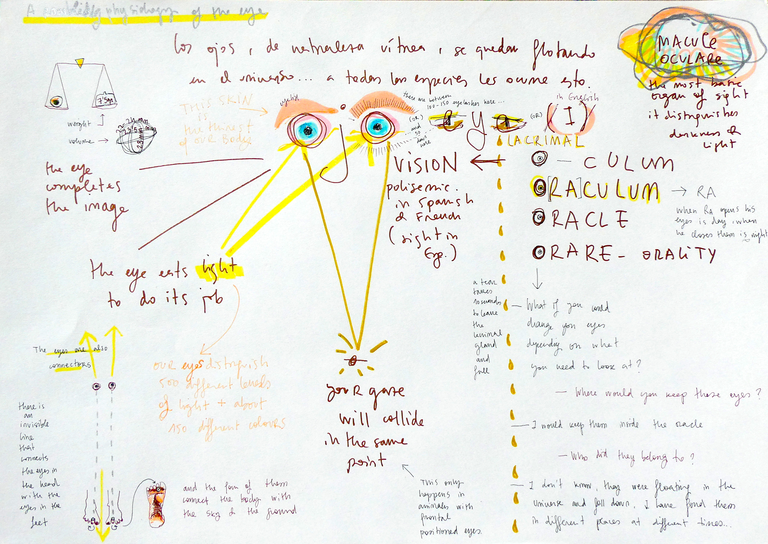 A physiology of the eye
los ojos, de naturaleza vítrea, se quedan flotando
en el universo... a todas las especies les ocurre esto.
MACULE
OCULARE
the most basic
organ of sight
it distinguishes
darkness &
light
weight
volume
the eye
completes
the image
THIS SKIN
IS
the thinnest
of our bodies
eyelid
there are between
100-150 eyelashes here...
(OR)
and
don't
here
y
(OR)
in English
(I)
LACRIMAL
VISION
polisemic
in Spanish
& French
(sight in
Eng.)
O - CULUM
O[RA]CULUM → RA
ORACLE
ORARE - ORALITY
when Ra opens his
eyes is day, when
he closes them is night
the eye eats light
to do its job
our eyes distinguish
500 different levels
of light + about
150 different colours
The eyes are also
connectors
there is
an
invisible
line
that
connects
the eyes in
the head
with the
eyes in the
feet
and the four of them
connect the body with
the sky & the ground
your gaze
will collide
in the same
point
This only
happens in
animals with
frontal
positioned eyes.
a tear
takes
seconds
to leave
the
lacrimal
gland
and
fall
- What if you could
change your eyes
depending on what
you need to look at?
- Where would you keep these eyes?
- I would keep them inside the oracle
- Who did they belong to?
- I don't know, they were floating in the
universe and fell down, I have found them
in different places at different times...